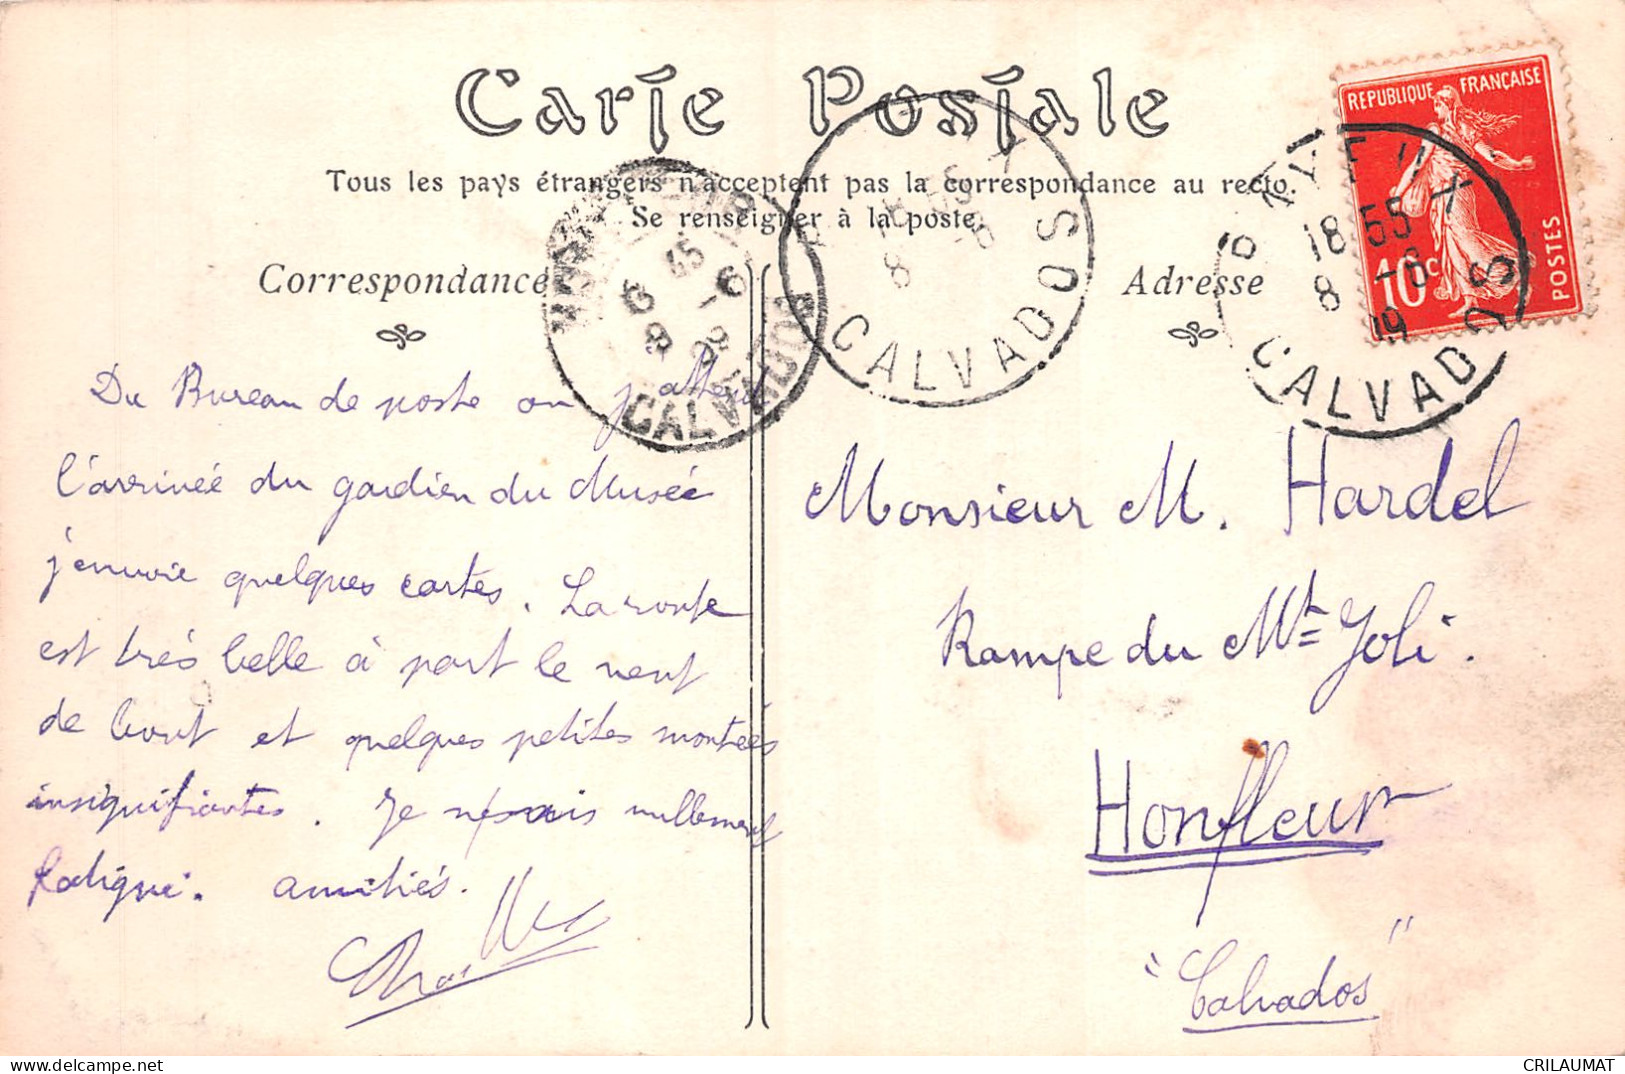 Carte Postale
Tous les pays étrangers n'acceptent pas la correspondance au recto.
Se renseigner à la poste
Correspondance
Adresse
REPUBLIQUE FRANÇAISE
10c
POSTES
BAYEUX
18 55
8 -6
19
CALVADOS
CALVADOS
CALVADOS
Du Bureau de poste où j'attend
l'arrivée du gardien du Musée
j'envoie quelques cartes. La route
est très belle à part le vent
de bout et quelques petites montées
insignifiantes. Je ne suis nullement
fatigué. amitiés.
Monsieur M. Hardel
Rampe du Mt Joli.
Honfleur
"Calvados"
CRILAUMAT